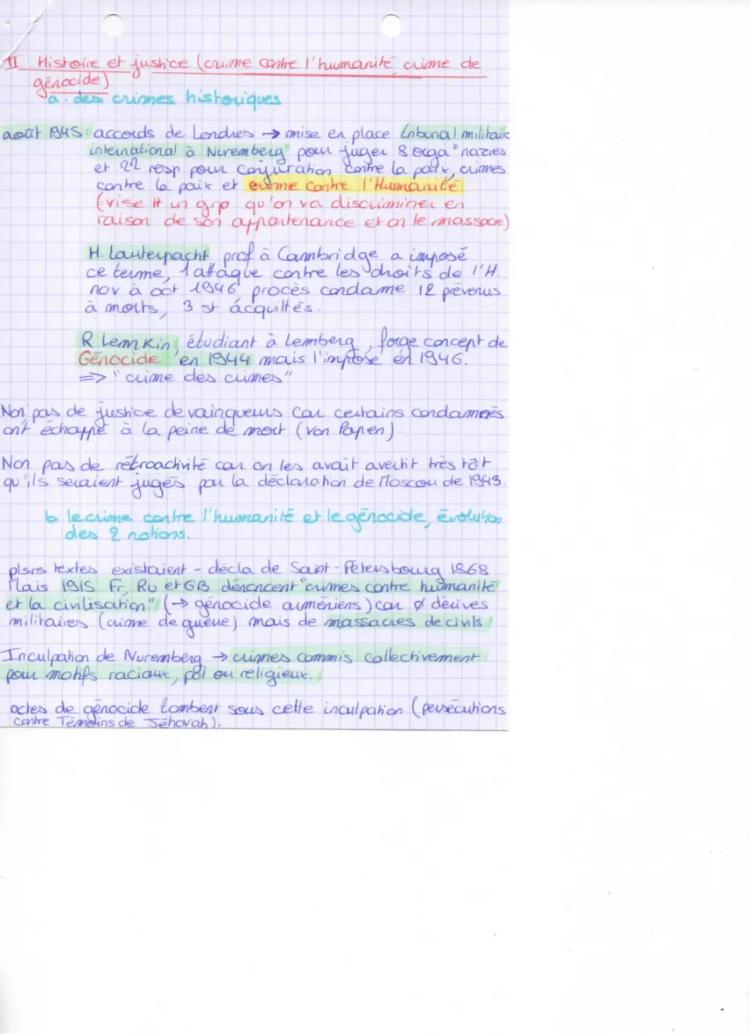 II Histoire et justice (crime contre l'humanité crime de
génocide)
a. des crimes historiques
août 1945 : accords de Londres → mise en place tribunal militaire
international à Nuremberg pour juger 8 orga° nazies
et 22 resp pour conjuration contre la paix, crimes
contre la paix et crime contre l'Humanité
(vise # un grp qu'on va discriminer en
raison de son appartenance et on le massacre)
H. Lauterpacht prof à Cambridge a imposé
ce terme, 1 attaque contre les droits de l'H.
nov à oct 1946 procès condame 12 prévenus
à morts, 3 st acquittés.
R Lemkin, étudiant à Lemberg, forge concept de
Génocide en 1944 mais l'impose en 1946.
=> "crime des crimes"
Non pas de justice de vainqueurs car certains condamnés
ont échappé à la peine de mort (von Papen)
Non pas de rétroactivité car on les avait avertit très tôt
qu'ils seraient jugés par la déclaration de Moscou de 1943.
b le crime contre l'humanité et le génocide, évolution
des 2 notions.
plsrs textes existaient - décla de Saint-Pétersbourg 1868
Mais 1915 Fr, Ru et GB dénoncent "crimes contre humanité
et la civilisation" (→ génocide arméniens) car ∅ dérives
militaires (crime de guerre) mais de massacres de civils
Inculpation de Nuremberg → crimes commis collectivement
pour motifs raciaux, pol ou religieux.
actes de génocide tombent sous cette inculpation (persécutions
contre Témoins de Jéhovah).